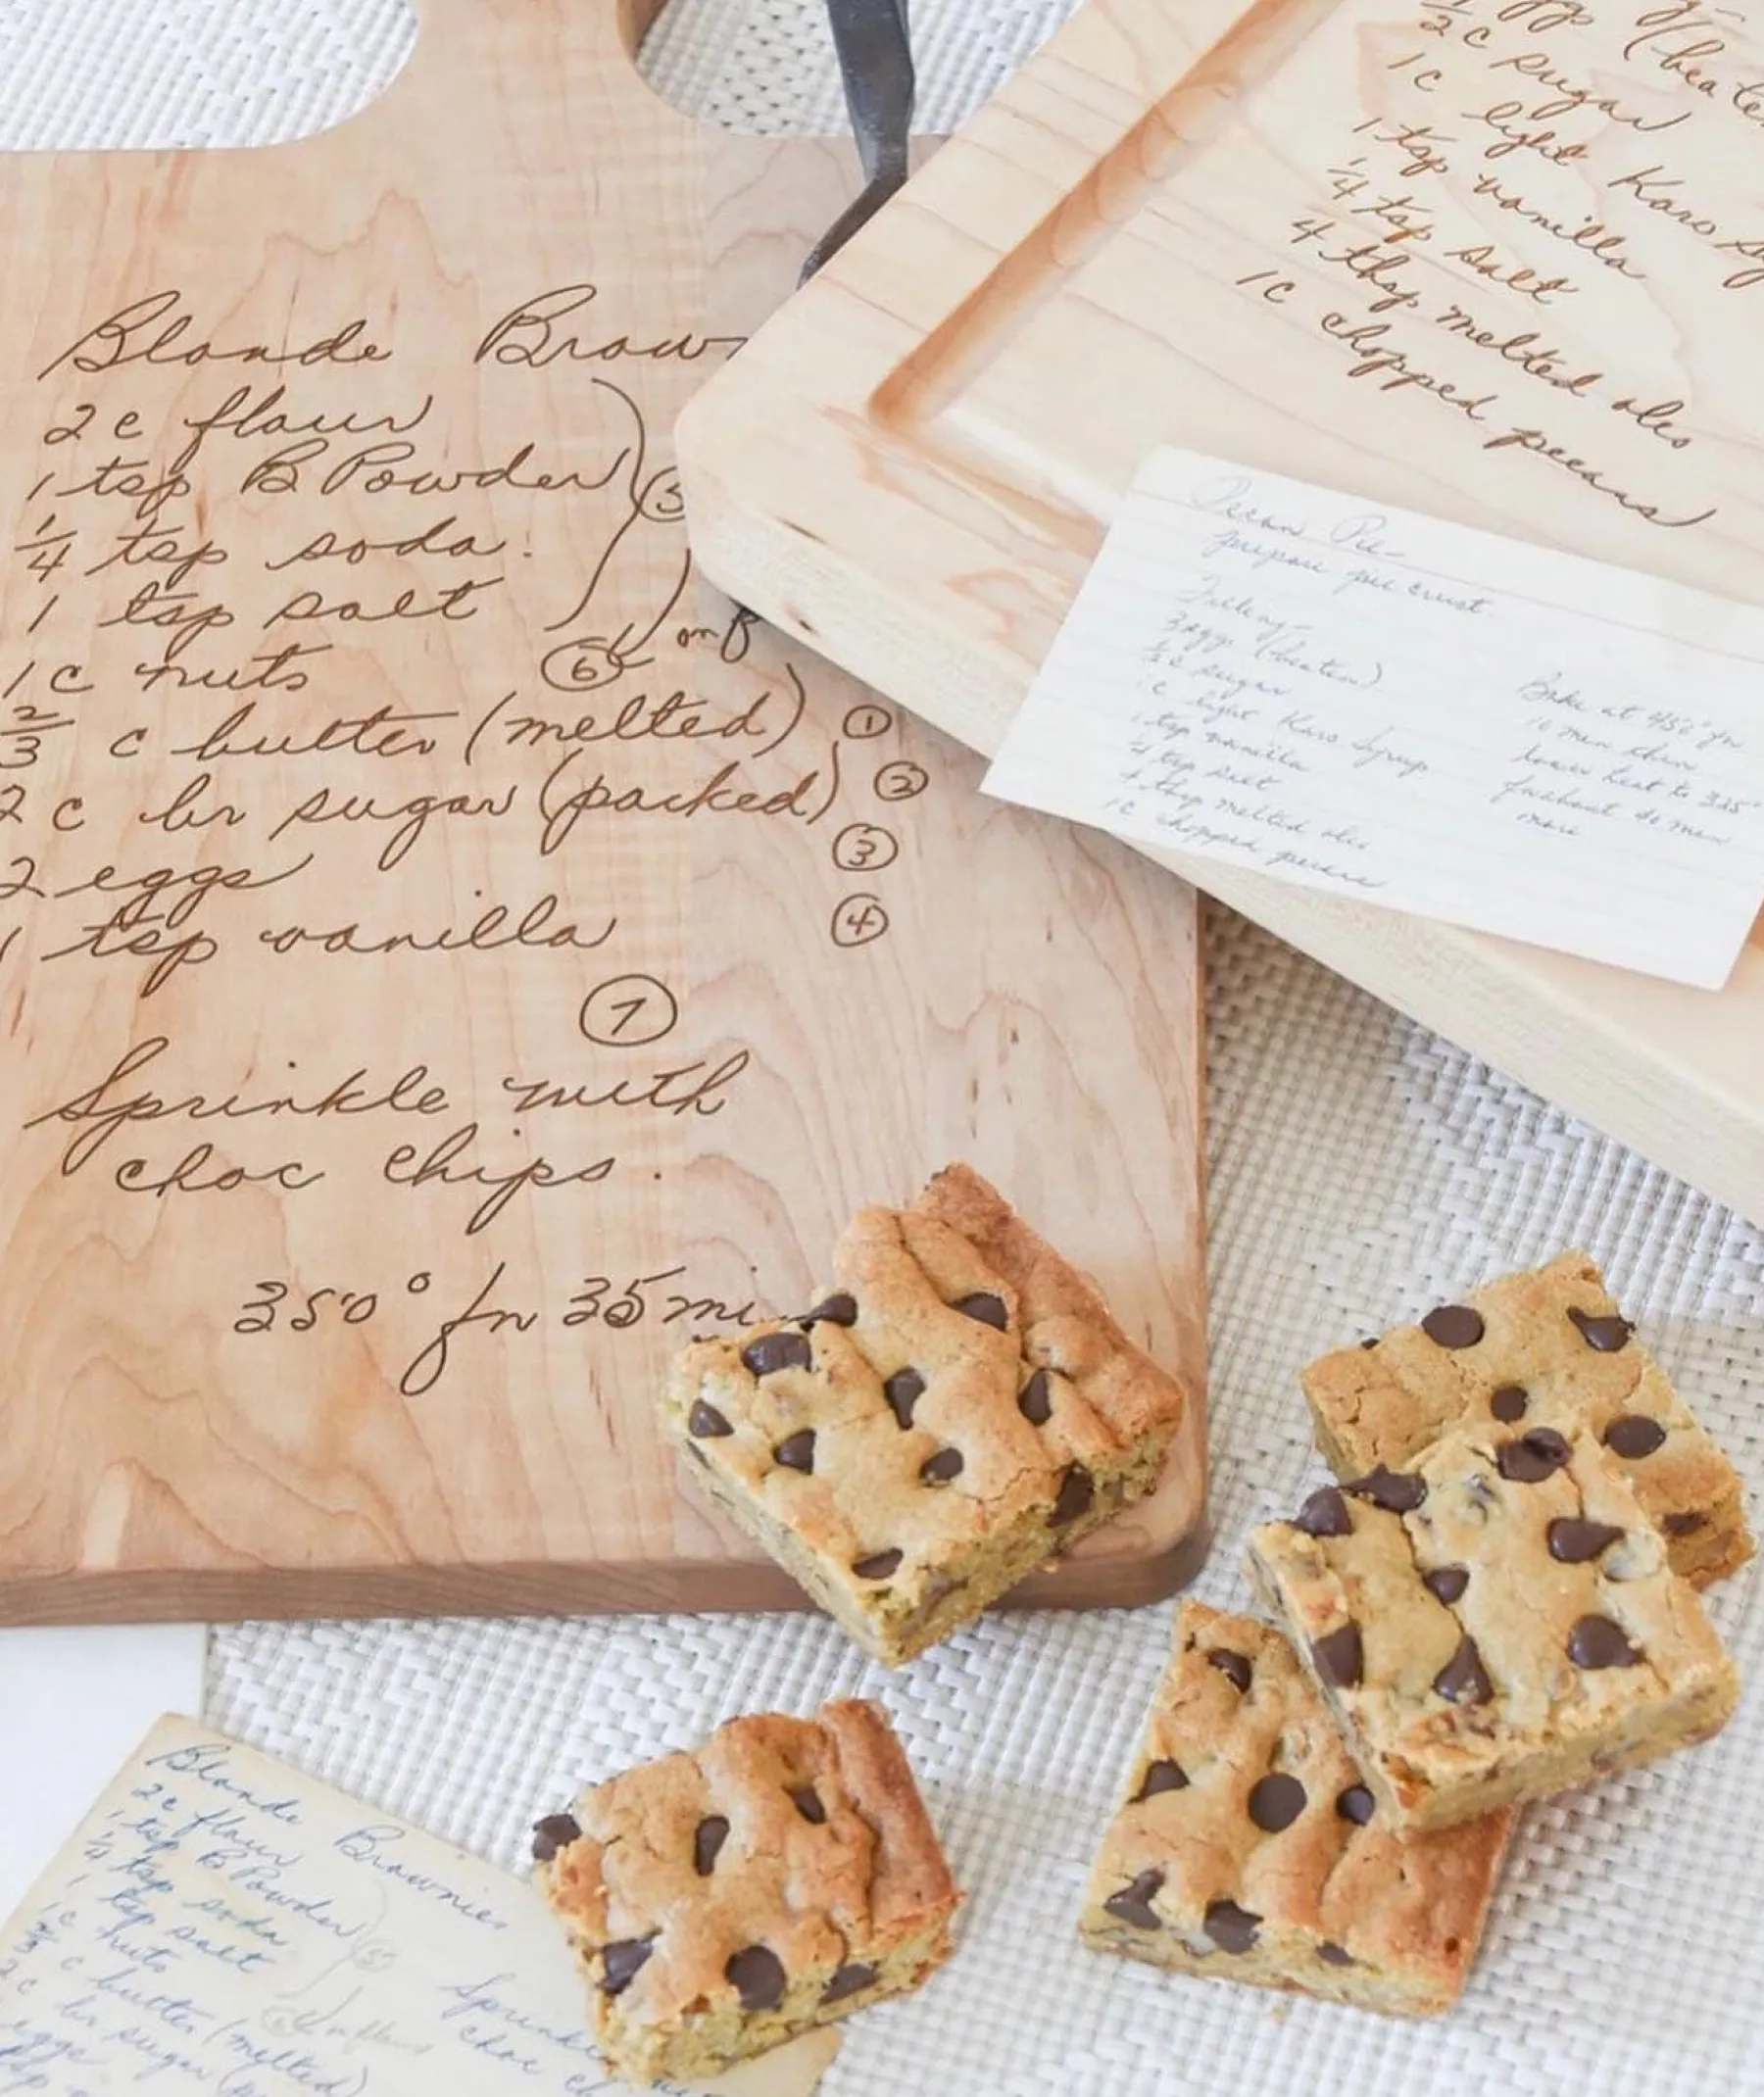 Blonde Brow
2 c flour
1 tsp B Powder
1/4 tsp soda
1 tsp salt
5
1 c nuts
6
2/3 c butter (melted) 1
2 c br sugar (packed) 2
2 eggs 3
1 tsp vanilla 4
7
Sprinkle with
choc chips.
350° for 35 min
(beaten
1/2 c sugar
1 c light Karo Sy
1 tsp vanilla
1/4 tsp salt
4 tbsp melted oleo
1 c chopped pecans
Pecan Pie
prepare pie crust
Filling
3 eggs (beaten)
1/2 c sugar
1 c light Karo Syrup
1 tsp vanilla
1/4 tsp salt
4 tbsp melted oleo
1 c chopped pecans
Bake at 450° for
10 min then
lower heat to 325°
more
Blonde Brownies
2 c flour
1 tsp B Powder
1/4 tsp soda
1 tsp salt
1 c nuts
2/3 c butter (melted)
2 c br sugar
eggs
tsp
5
Sprinkle
choc ch